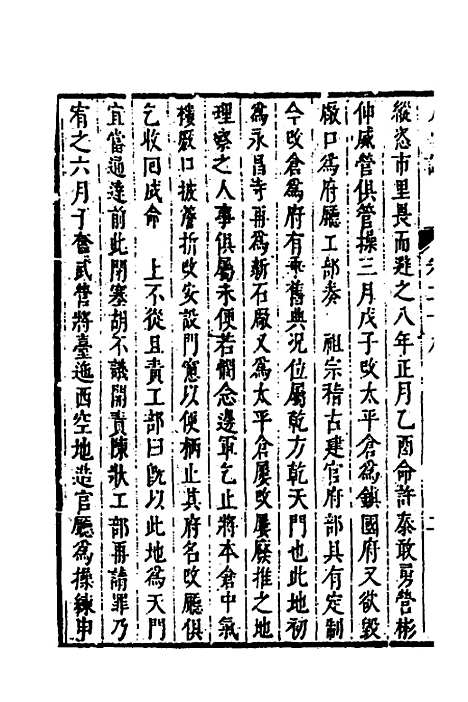 縱恣市里畏而避之八年正月乙酉命許泰敢勇營彬
仲威營俱管操三月戊子改太平倉爲鎮國府又欲毀
廠口爲府廳工部奏　祖宗稽古建官府部具有定制
今改倉爲府有乖舊典況位屬乾方乾天門也此地初
爲永昌寺再爲新石厰又爲太平倉屢改屢廢推之地
理察之人事俱屬未便若憫念邊軍乞止將本倉中氣
樓廠口披簷折改安設門窻以便栖止其府名改廳俱
乞收回成命　上不從且責工部曰旣以此地爲天門
宜當通達前此閉塞胡不議開責陳狀工部再請罪乃
宥之六月于奮武營將臺迤西空地造官廳爲操練申